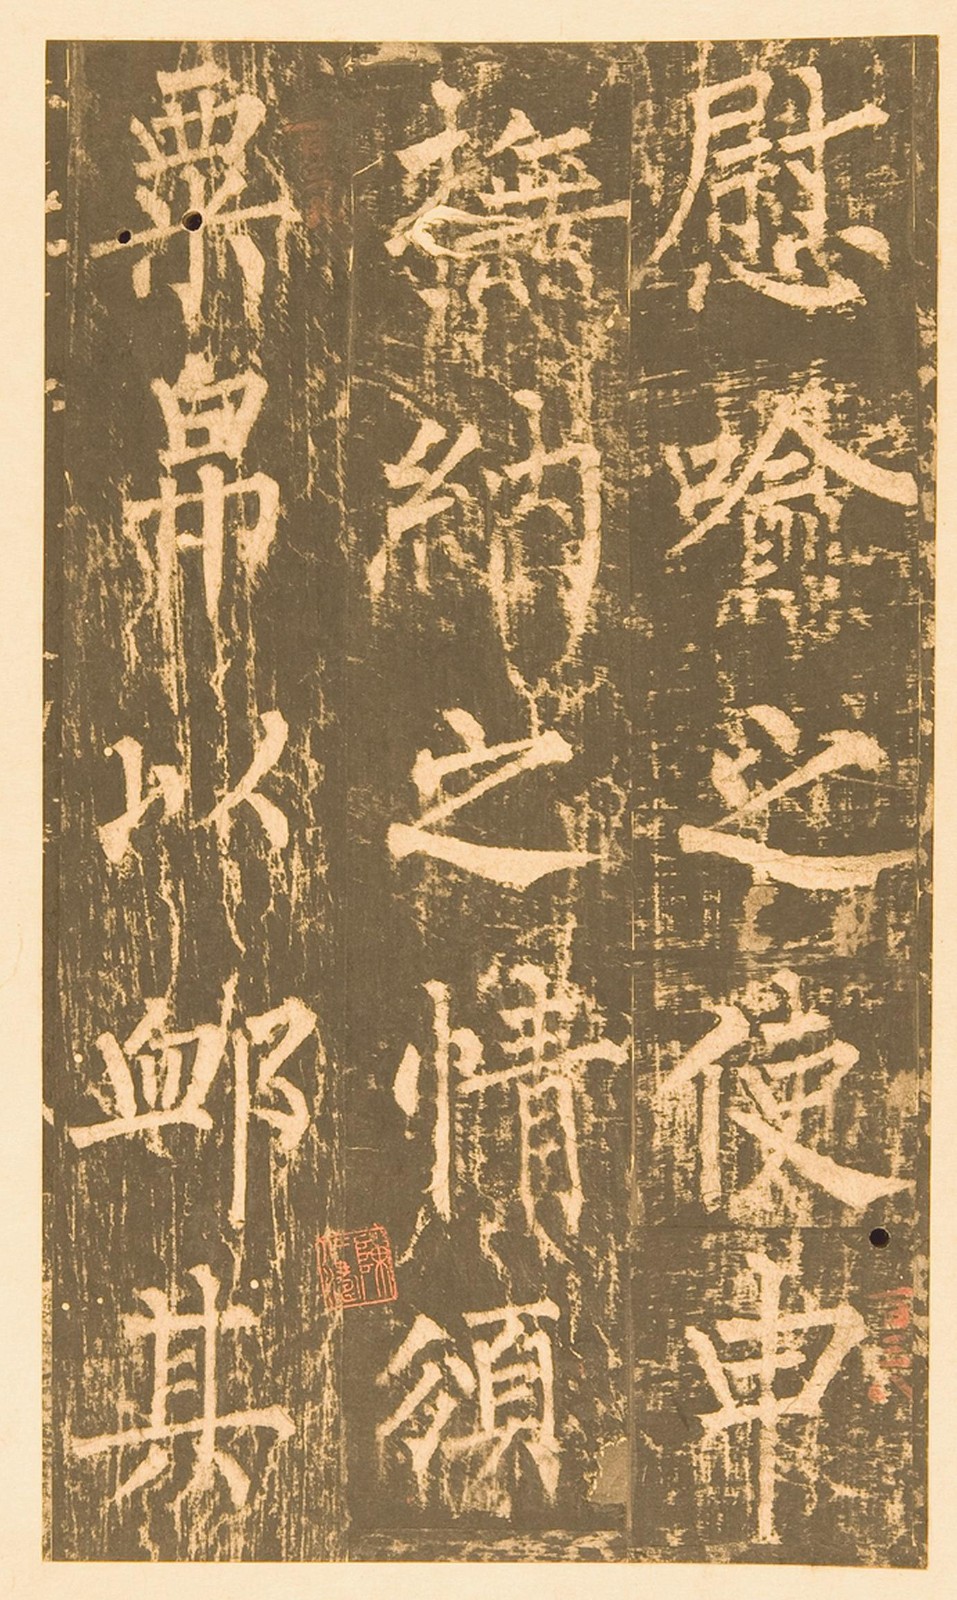 慰喻之使申
撫納之情領
粟帛以卹其